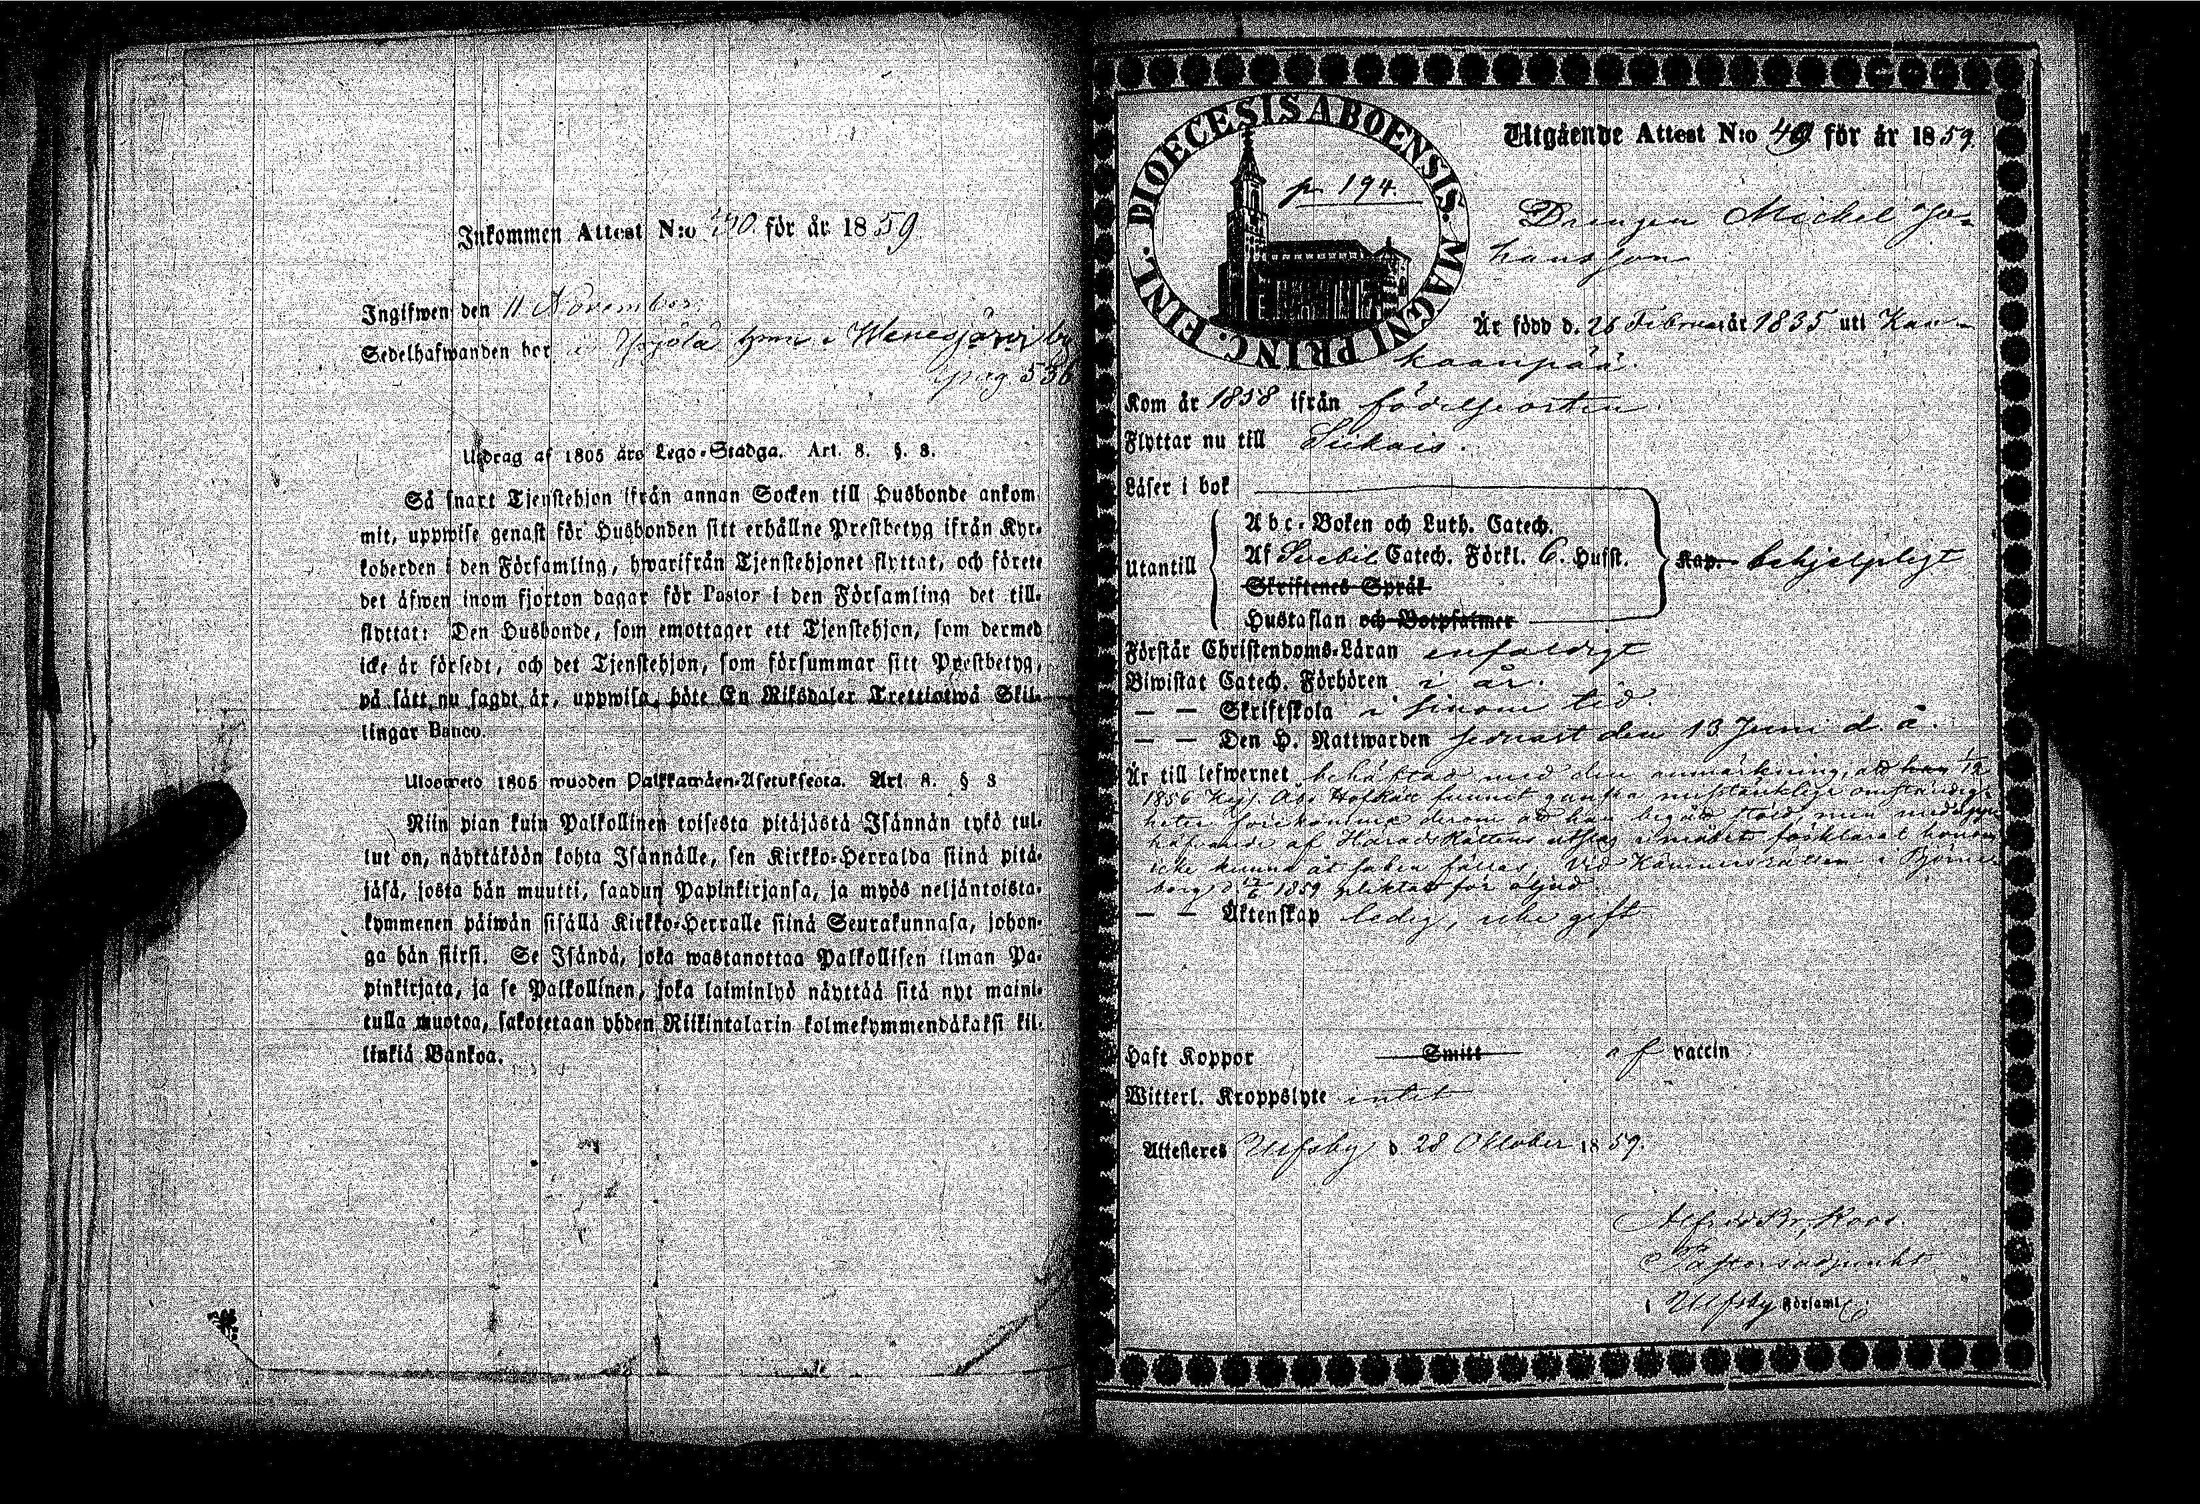 Inkommen Attest N:o 30 för år 1859
Ingifwen den 11 November
Sedelhafwanden bor i Yrjölä hmn i Wenesjärvi by
pag. 536
Utdrag af 1805 års Lego-Stadga. Art. 8. §. 3.
Så snart Tjenstehjon ifrån annan Socken till Husbonde ankom-
mit, uppwise genast för Husbonden sitt erhållne Prestbetyg ifrån Kyr-
koherden i den Församling, hwarifrån Tjenstehjonet flyttat, och förete
det äfwen inom fjorton dagar för Pastor i den Församling det till-
flyttat: Den Husbonde, som emottager ett Tjenstehjon, som dermed
icke är försedt, och det Tjenstehjon, som försummar sitt Prestbetyg,
på sätt nu sagdt är, uppwisa, böte En Riksdaler Trettiotwå Skil-
lingar Banco.
Ulosweto 1805 wuoden Palkkawäen-Asetuksesta. Art. 8. § 3
Niin pian kuin Palkollinen toisesta pitäjästä Isännän tykö tul-
lut on, näyttäköön kohta Isännälle, sen Kirkko-Herralda siinä pitä-
jäsä, josta hän muutti, saadun Papinkirjansa, ja myös neljäntoista-
kymmenen päiwän sisällä Kirkko-Herralle siinä Seurakunnasa, johon-
ga hän siirsi. Se Isändä, joka wastanottaa Palkollisen ilman Pa-
pinkirjata, ja se Palkollinen, joka laiminlyö näyttää sitä nyt maini-
tulla muotoa, sakotetaan yhden Riikintalarin kolmekymmendäkaksi kil-
linkiä Bankoa.
DIOECESIS ABOENSIS. MAGNI PRINC. FINL.
p 194.
Utgående Attest N:o 49 för år 1859
Drengen Michel Jo-
hansson
Är född d. 26 Februari år 1835 uti Kan-
kaanpää.
Kom år 1858 ifrån födelseorten
Flyttar nu till Siikais.
Läser i bok
Utantill
Abc-Boken och Luth. Catech.
Af Svebil Catech. Förkl. 6. Hufst.
Skriftenes Språk
Hustaflan och Botpsalmer
Kap. behjelpligt
Förstår Christendoms-Läran enfaldigt
Biwistat Catech. Förhören i år.
— — Skriftskola i sinom tid.
— — Den H. Nattwarden sednast den 13 Juni d. å.
Är till lefwernet behäftad med den anmärkning, att
1856 Kejs. Åbo Hofrätt funnit ganska misstänkliga omständig-
heter förekomma derom att han begått stöld, men
af HäradsRättens utslag förklarat honom
icke kunna åt saken fällas. Vid Kämnersrätten i Björne-
borg d. 1859 pliktat för oljud.
— — Äktenskap ledig, icke gift
Haft Koppor Smitt af vaccin
Witterl. Kroppslyte intet
Attesteres Ulfsby d. 28 Oktober 1859.
Alfred Br. Roos
Pastorsadjunkt
i Ulfsby Förslaml